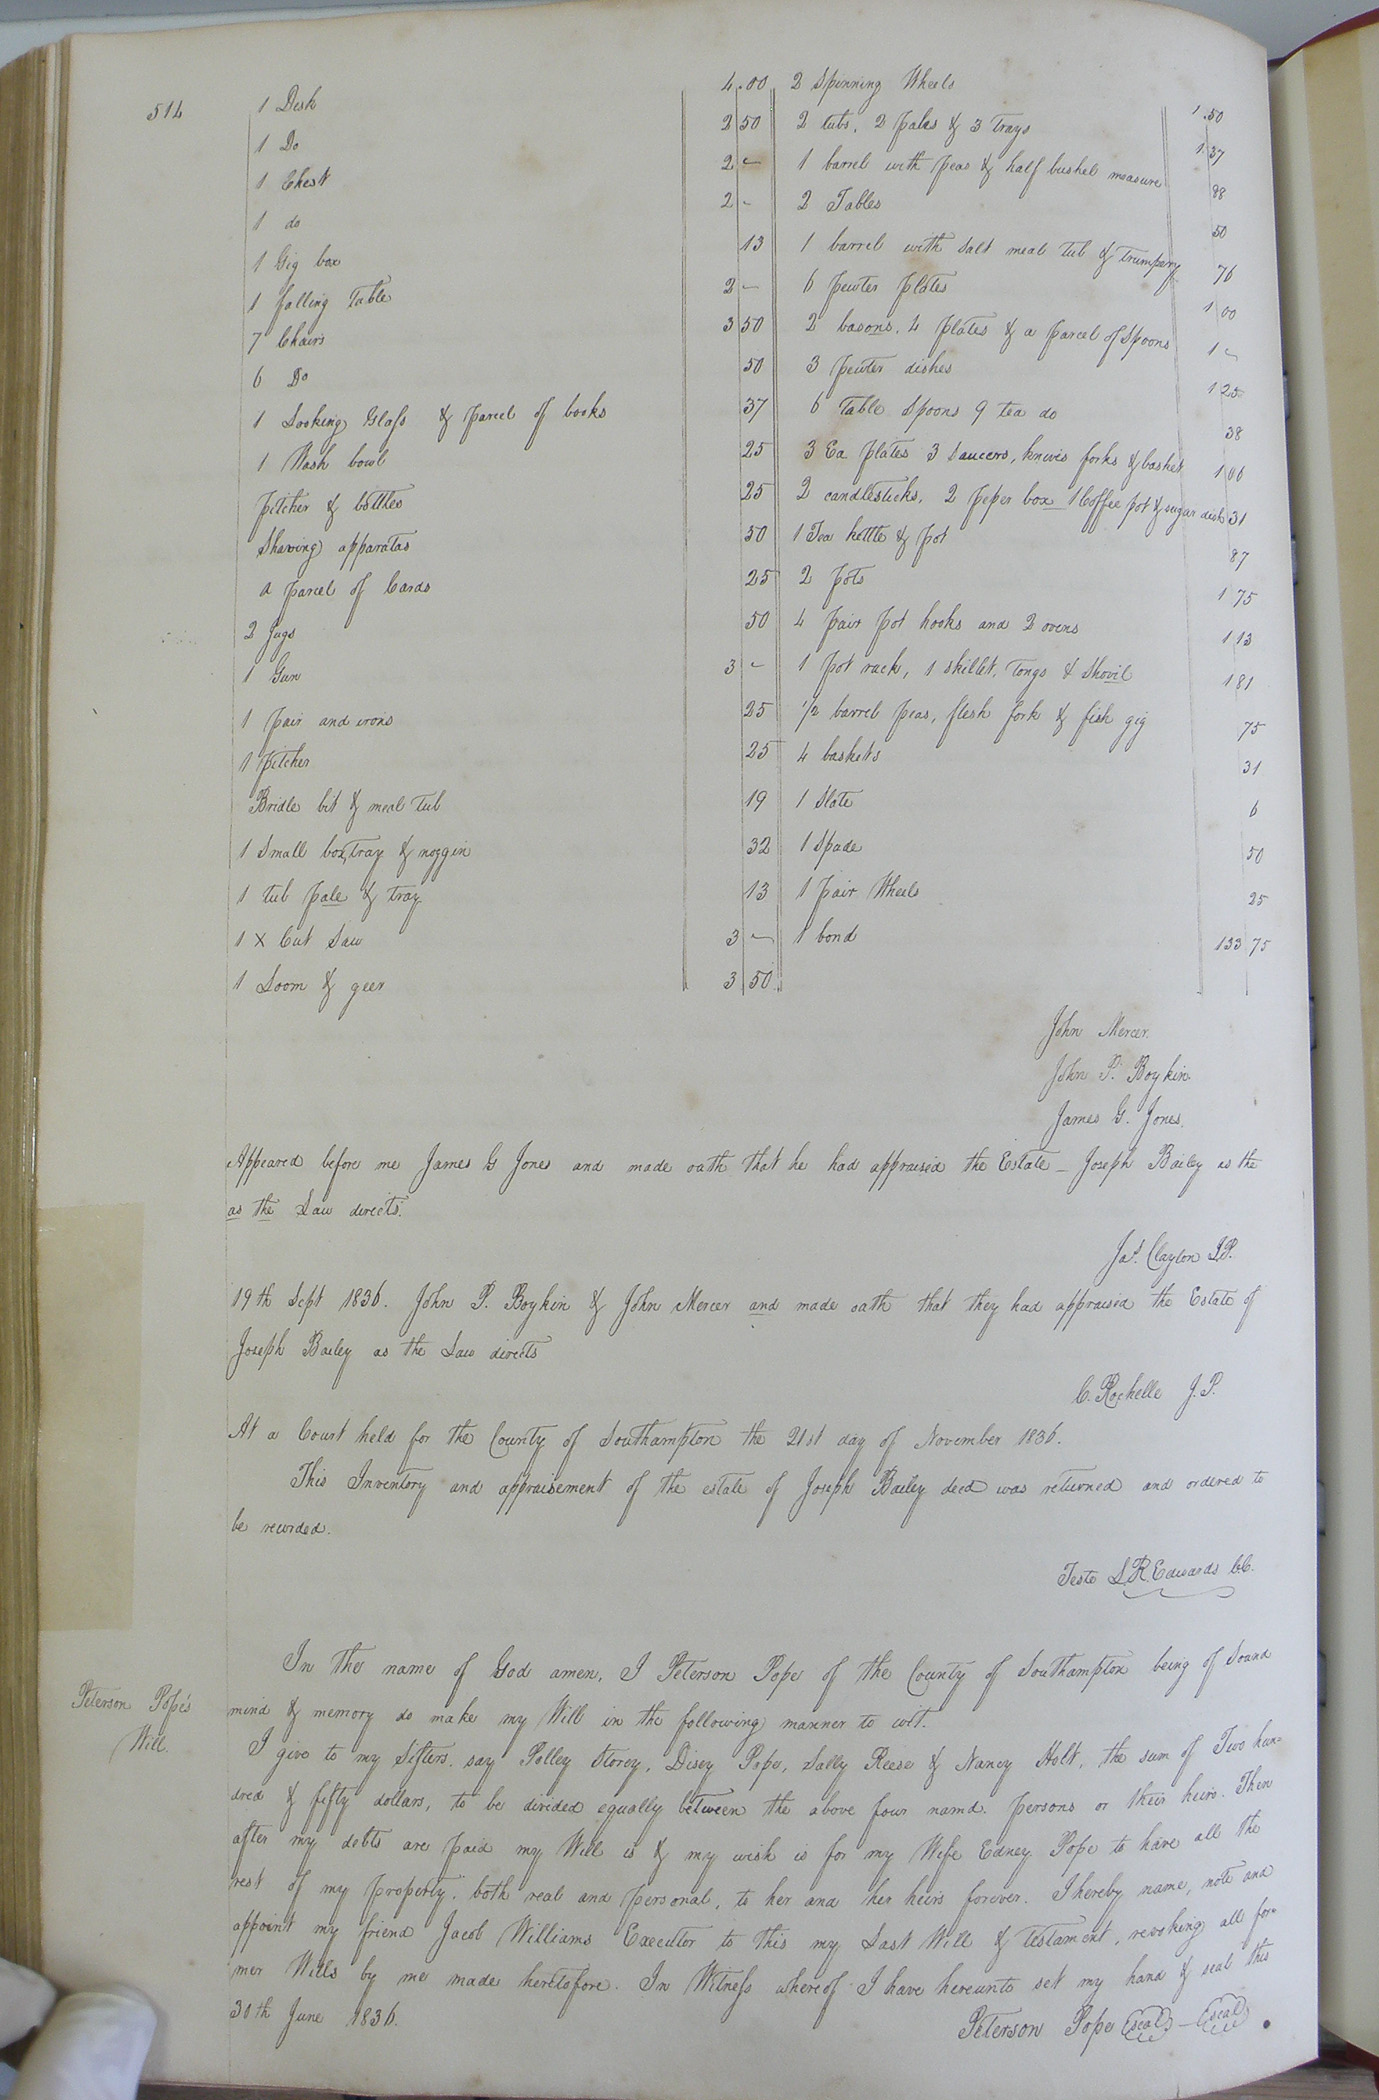 514
1 Desk 4.00
1 Do 2 50
1 Chest 2 -
1 do 2 -
1 Gig box 13
1 falling Table 2 -
7 Chairs 3 50
6 Do 50
1 Looking Glass & parcel of books 37
1 Wash bowl 25
pitcher & bottles 25
Shaving apparatas 50
a parcel of Cards 25
2 Jugs 50
1 Gun 3 -
1 pair and irons 25
1 pitcher 25
Bridle bit & meal tub 19
1 Small box, tray & noggin 32
1 tub pale & tray 13
1 X Cut Saw 3 -
1 Loom & geer 3 50
2 Spinning Wheels 1.50
2 tubs, 2 pales & 3 trays 1 37
1 barrel with peas & half bushel measure 88
2 Tables 50
1 barrel with Salt meal tub & trumpery 76
6 pewter plates 1 00
2 basons, 4 plates & a parcel of Spoons 1 -
3 pewter dishes 1 25
6 Table Spoons 9 tea do 38
3 Ea plates 3 Saucers, knives forks & basket 1 00
2 candlesticks, 2 peper box 1 Coffee pot & sugar dish 31
1 Tea kettle & pot 87
2 pots 1 75
4 pair pot hooks and 2 ovens 1 13
1 pot rack, 1 skillet, tongs & Shovil 1 81
1/2 barrel peas, flesh fork & fish gig 75
4 baskets 31
1 Slate 6
1 Spade 50
1 pair Wheels 25
1 bond 133 75
John Mercer.
John P. Boykin.
James G. Jones.
Appeared before me James G Jones and made oath that he had appraised the Estate - Joseph Bailey as the
as the Law directs.
Jas. Clayton J.P.
19th Sept 1836. John P. Boykin & John Mercer and made oath that they had appraised the Estate of
Joseph Bailey as the Law directs
C. Rochelle J.P.
At a Court held for the County of Southampton the 21st day of November 1836.
This Inventory and appraisement of the estate of Joseph Bailey decd was returned and ordered to
be recorded.
Teste L.R. Edwards C.C.
Peterson Pope's
Will.
In the name of God amen, I Peterson Pope of the County of Southampton being of Sound
mind & memory do make my Will in the following manner to wit.
I give to my Sisters, say Polley Storey, Disey Pope, Sally Reese & Nancy Holt, the sum of Two hun-
dred & fifty dollars, to be divided equally between the above four namd. persons or their heirs. Then
after my debts are paid my Will is & my wish is for my Wife Edney Pope to have all the
rest of my property, both real and personal, to her and her heirs forever. I hereby name, note and
appoint my friend Jacob Williams Executor to this my Last Will & Testament, revoking all for-
mer Wills by me made heretofore. In Witness whereof I have hereunto set my hand & seal this
30th June 1836.
Peterson Pope (seal) - (seal)